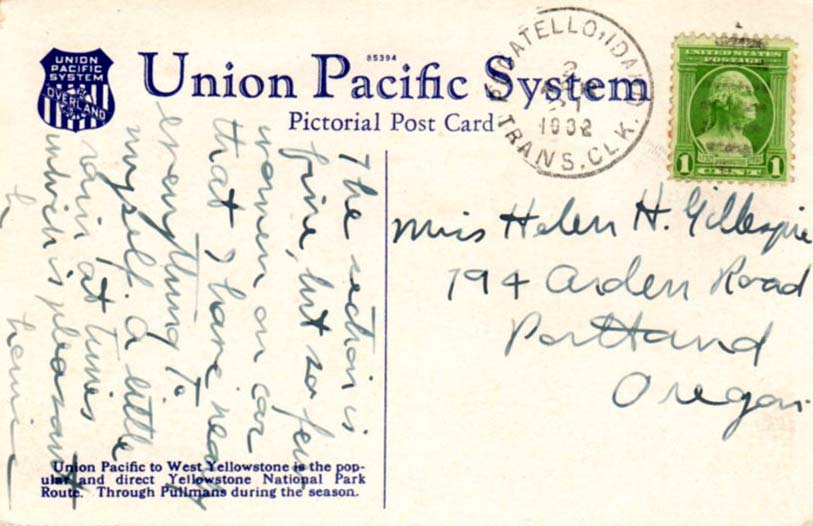 UNION
PACIFIC
SYSTEM
OVERLAND
85394
Union Pacific System
Pictorial Post Card
POCATELLO, IDAHO
2
1932
TRANS. CLK.
UNITED STATES
POSTAGE
1 1
The section is
fine, but so few
women on car
that I have nearly
everything to
myself. A little
rain at times
which is pleasant
Miss Helen H. Gillespie
794 Arden Road
Portland
Oregon
Union Pacific to West Yellowstone is the pop-
ular and direct Yellowstone National Park
Route. Through Pullmans during the season.